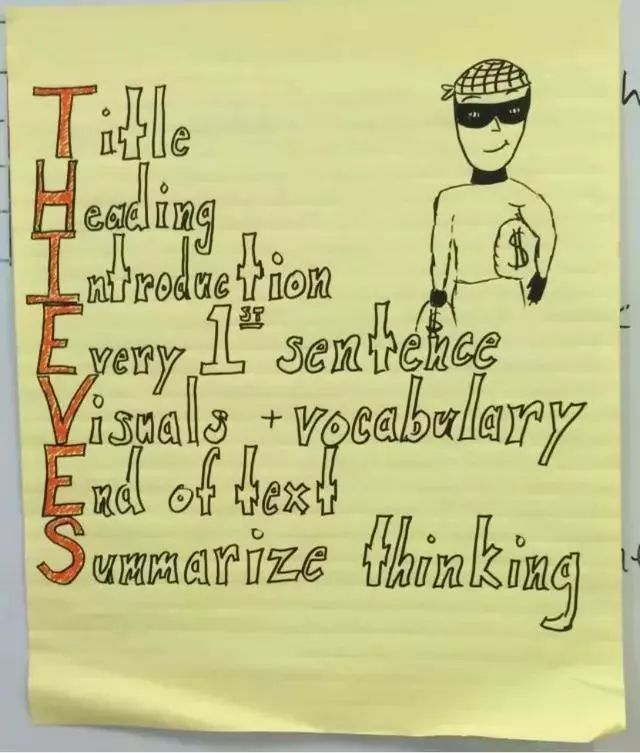 Title
Heading
Introduction
Every 1ST sentence
Visuals + vocabulary
End of text
Summarize thinking
$
$